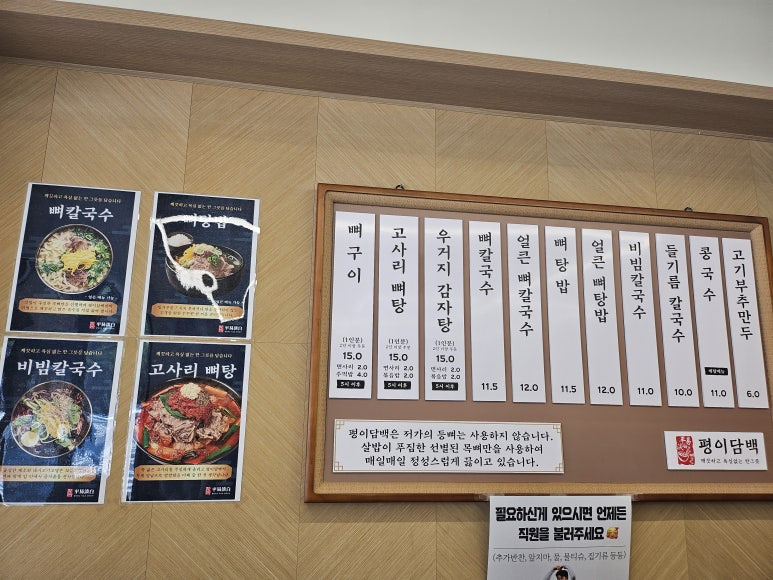 깨끗하고 욕심 없는 한 그릇을 담습니다
뼈칼국수
平易淡白
깨끗하고 욕심 없는 한 그릇을 담습니다
뼈탕밥
平易淡白
깨끗하고 욕심 없는 한 그릇을 담습니다
비빔칼국수
平易淡白
깨끗하고 욕심 없는 한 그릇을 담습니다
고사리 뼈탕
平易淡白
뼈구이
(1인분)
15.0
면사리 2.0
주먹밥 4.0
5시 이후
고사리 뼈탕
(1인분)
15.0
면사리 2.0
볶음밥 2.0
5시 이후
우거지 감자탕
(1인분)
15.0
면사리 2.0
볶음밥 2.0
5시 이후
뼈칼국수
11.5
얼큰 뼈칼국수
12.0
뼈탕밥
11.5
얼큰 뼈탕밥
12.0
비빔칼국수
11.0
들기름 칼국수
10.0
콩국수
계절메뉴
11.0
고기부추만두
6.0
평이담백은 저가의 등뼈는 사용하지 않습니다.
살밥이 푸짐한 선별된 목뼈만을 사용하여
매일매일 정성스럽게 끓이고 있습니다.
평이담백
깨끗하고 욕심없는 한그릇
필요하신게 있으시면 언제든
직원을 불러주세요
(추가반찬, 앞치마, 물, 물티슈, 집기류 등등)